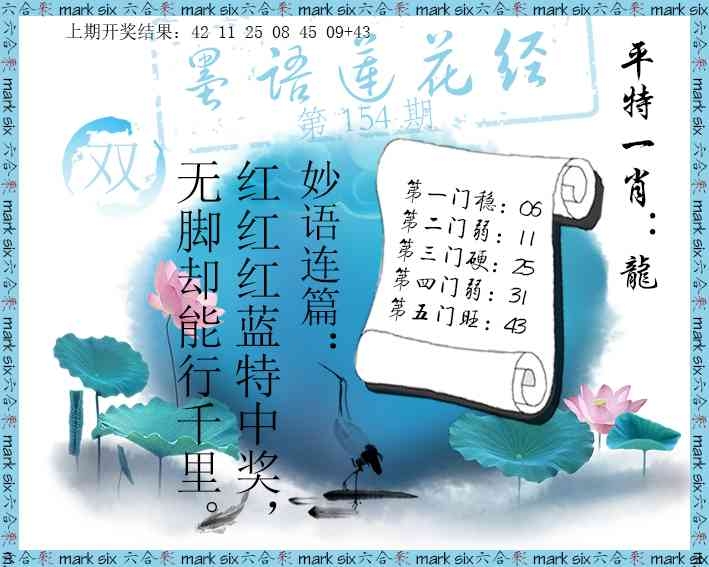 上期开奖结果：42 11 25 08 45 09+43
墨语莲花经
第 154 期
双
平特一肖：龍
第一门稳：06
第二门弱：11
第三门硬：25
第四门弱：31
第五门旺：43
妙语连篇：
红红红蓝特中奖，
无脚却能行千里。
mark six 六合彩 mark six 六合彩 mark six 六合彩 mark six 六合彩 mark six 六合彩 mark six 六合彩